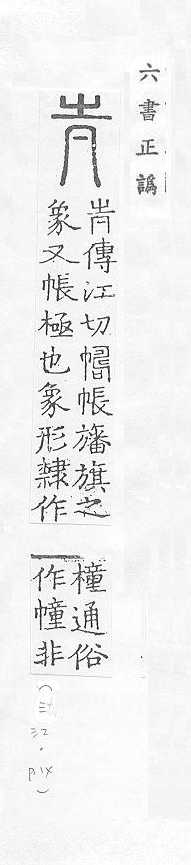 六書正譌
傳江切幬帳旛旗之
象又帳極也象形隸作
橦通俗
作幢非